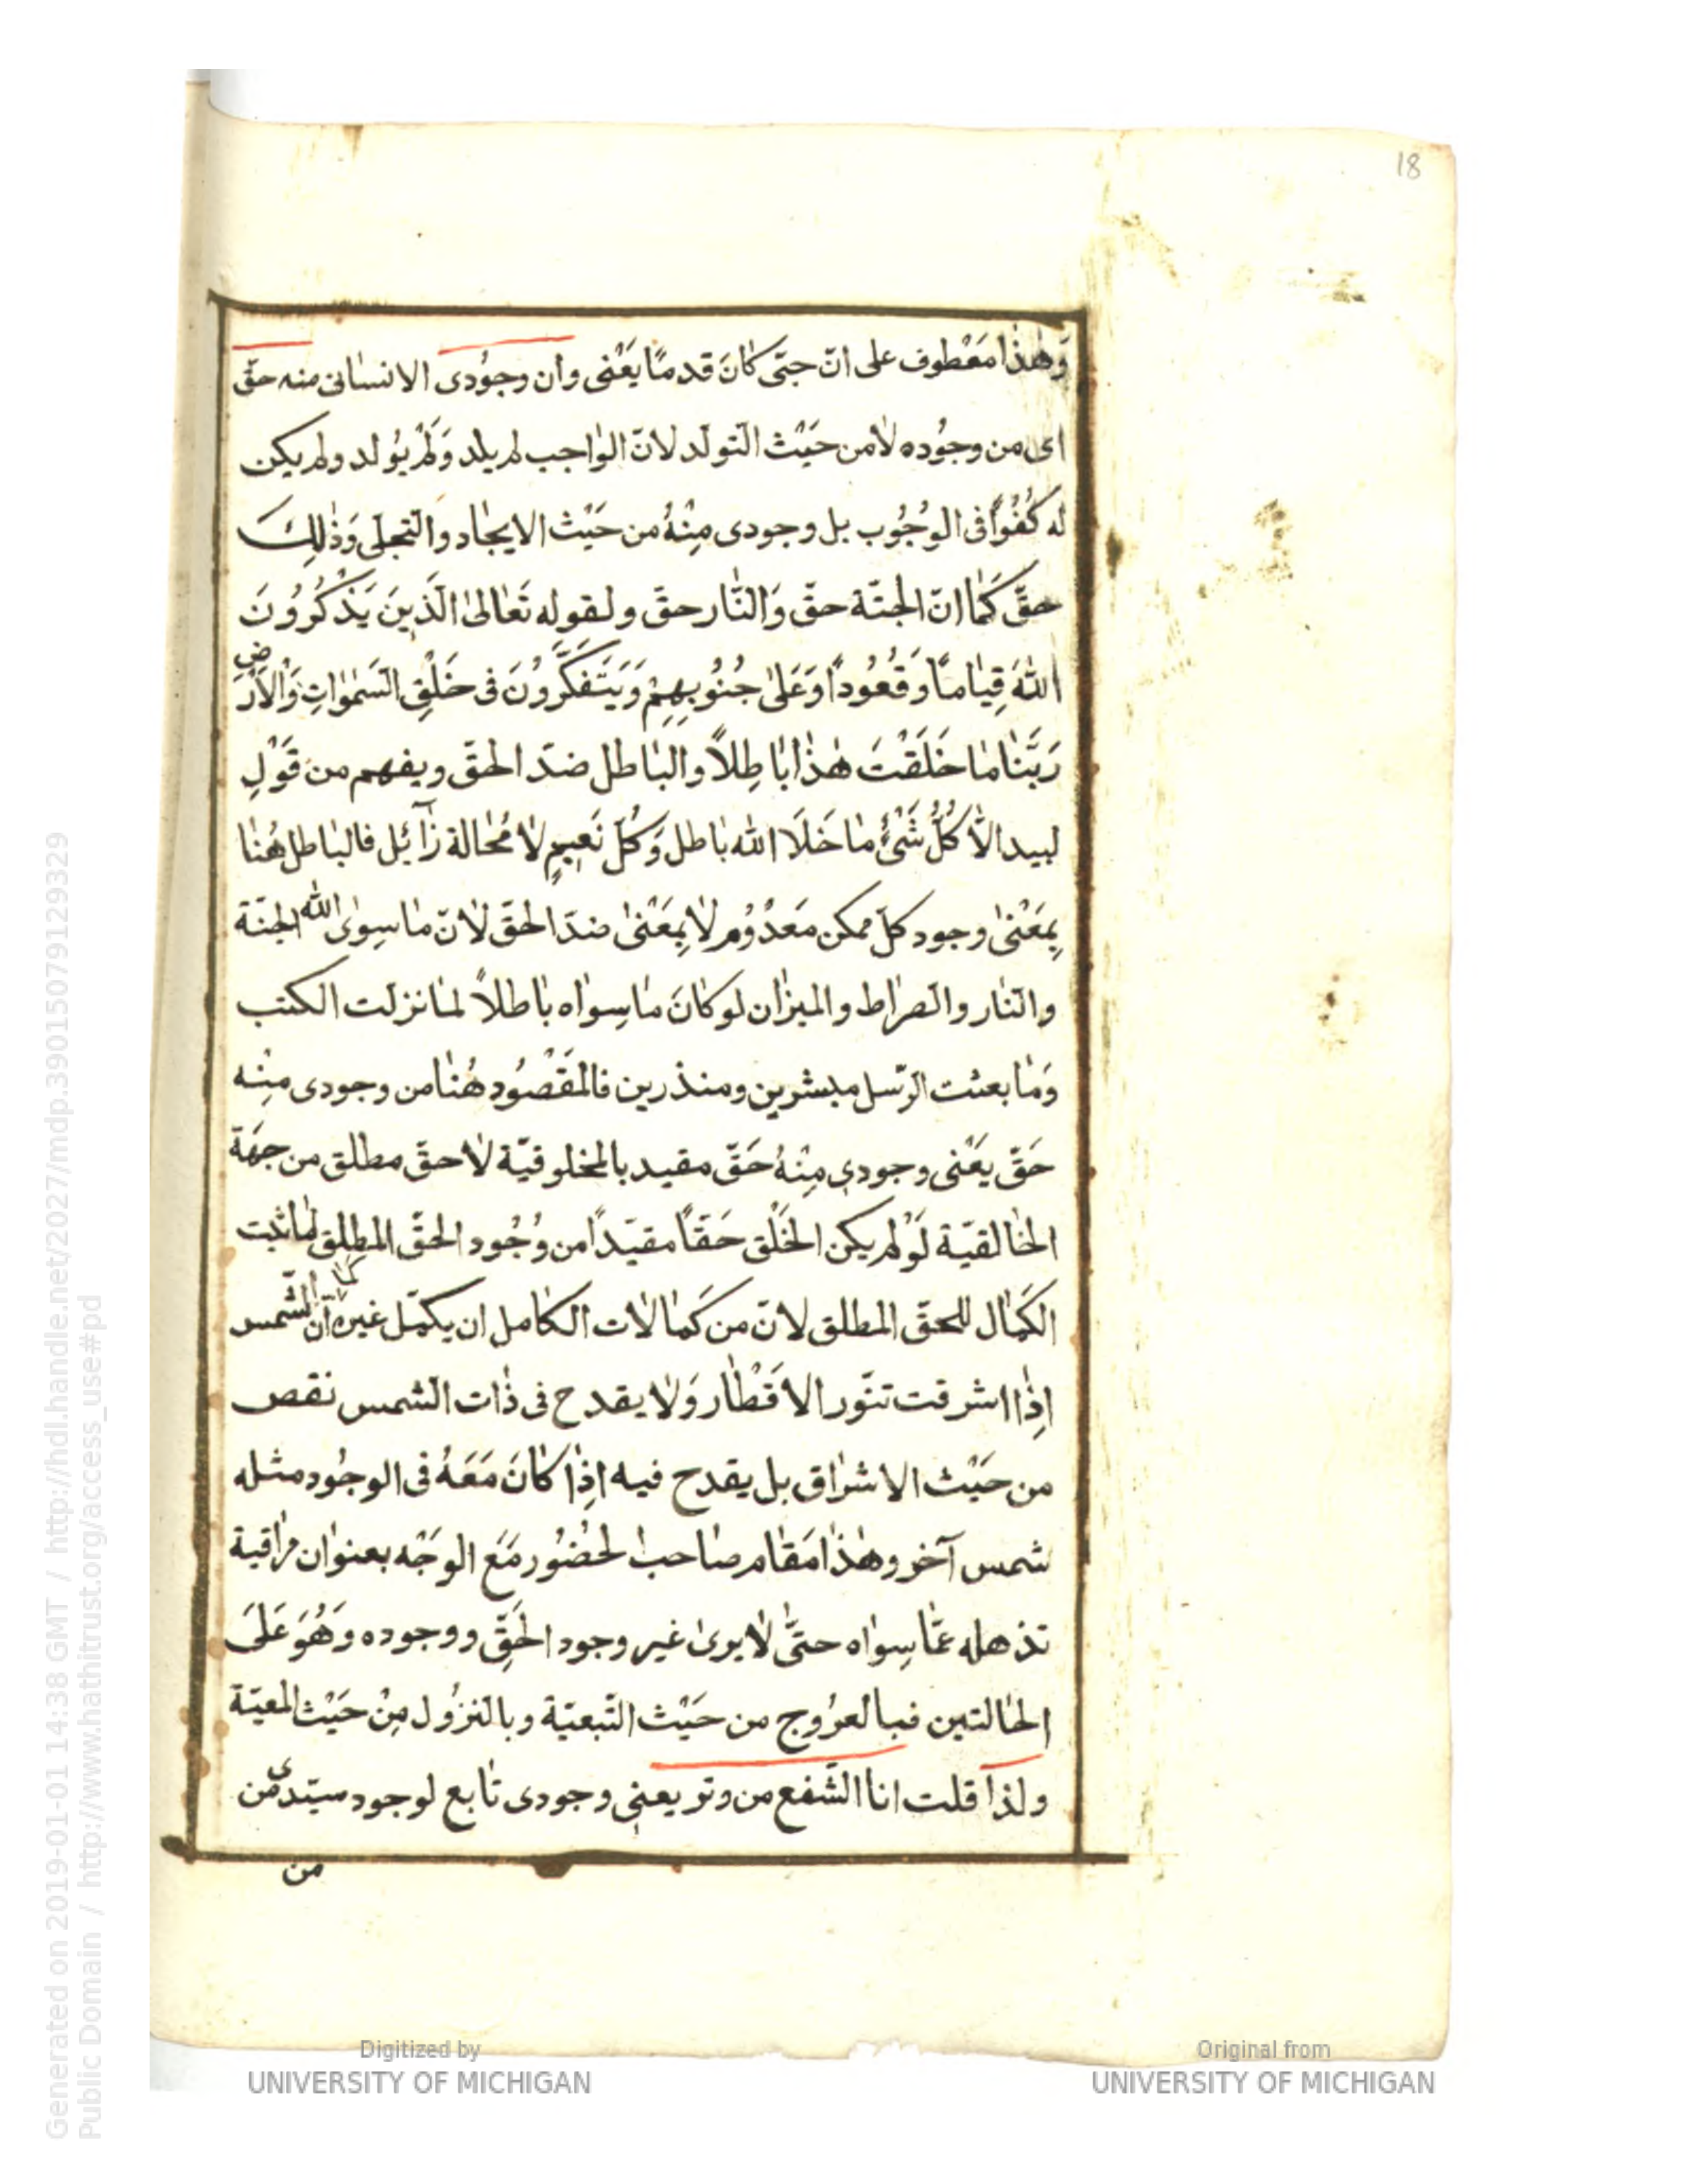 18
وَهٰذا مَعْطوف على انّ حبّى كانَ قدمًا يَعْنى وان وجوُدى الانسانى منه حقّ
اى من وجوُده لا من حَيْث التّولّد لانّ الوٰاجب لم يلد وَلَمْ يوُلد ولم يكن
له كُفُوًا فى الوُجُوب بل وجودى مِنْهُ من حَيْث الايجٰاد والتجلى وَذٰلِكَ
حقّ كَمٰا انّ الجنّة حقّ وَالنّٰار حقّ ولقوله تَعٰالىٰ الَّذينَ يَذْكُرُونَ
اللّٰهَ قِيٰامًا وَقُعُودًا وَعَلىٰ جُنُوبِهِمْ وَيَتَفَكَّرُونَ فى خَلْقِ السَّمٰوٰاتِ وَالْاَرْض
رَبَّنٰا مٰا خَلَقْتَ هٰذٰا بٰاطِلاً والبٰاطل ضدّ الحقّ ويفهم من قَوْلِ
لبيد الاّٰ كُلُّ شَئٍْ مٰا خَلَا اللّٰه بٰاطل وَكُلّ نَعيمٍ لٰا مُحٰالة زٰآئل فالبٰاطل هُنٰا
بِمَعْنىٰ وجود كلّ ممكن مَعْدُوُم لٰا بِمَعْنىٰ ضدّ الحقّ لٰانّ مٰا سِوٰى اللّٰه الجنّة
والنّٰار والصّرٰاط والميزٰان لو كٰانَ مٰا سِوٰاه بٰاطلاً لمٰا نزلت الكتب
وَمٰا بعثت الرّسل مبشرين ومنذرين فالمَقْصُود هُنٰا من وجودى مِنْه
حَقّ يعَْنى وجودى مِنْهُ حَقّ مقيد بالمخلوقيّة لٰا حقّ مطلق من جهَة
الخٰالقيّة لَوْ لم يكن الخَلْق حَقّاً مقيّدًا من وُجُود الحقّ المطلق لمٰا ثبت
الكَمٰال للحقّ المطلق لانّ من كَمٰالٰات الكٰامل ان يكمّل غيره كما انّ الشّمس
اِذٰا اشرقت تنوّر الاقَْطٰار وَلٰا يقدح فى ذٰات الشّمس نقص
من حَيْث الاشرٰاق بل يقدح فيه اذِٰا كٰانَ مَعَهُ فى الوجُود مثله
شمس آخر وهٰذٰا مَقٰام صٰاحب الحُضُور مَعَ الوجَْه بعنوٰان مرٰاقبة
تذهله عمّٰا سِوٰاه حتّٰى لٰا يرىٰ غير وجود الحَقِّ ووجوده وَهُوَ عَلَى
الحٰالتين فبالعرُوج من حَيْث التّبعيّة وبالنزُول مِنْ حَيْث المعيّة
ولذٰا قلت انا الشّفع من وتر يعنى وجودى تٰابع لوجود سيّدى من
من
Generated on 2019-01-01 14:38 GMT / http://hdl.handle.net/2027/mdp.39015079129329
Public Domain / http://www.hathitrust.org/access_use#pd
Digitized by
UNIVERSITY OF MICHIGAN
Original from
UNIVERSITY OF MICHIGAN